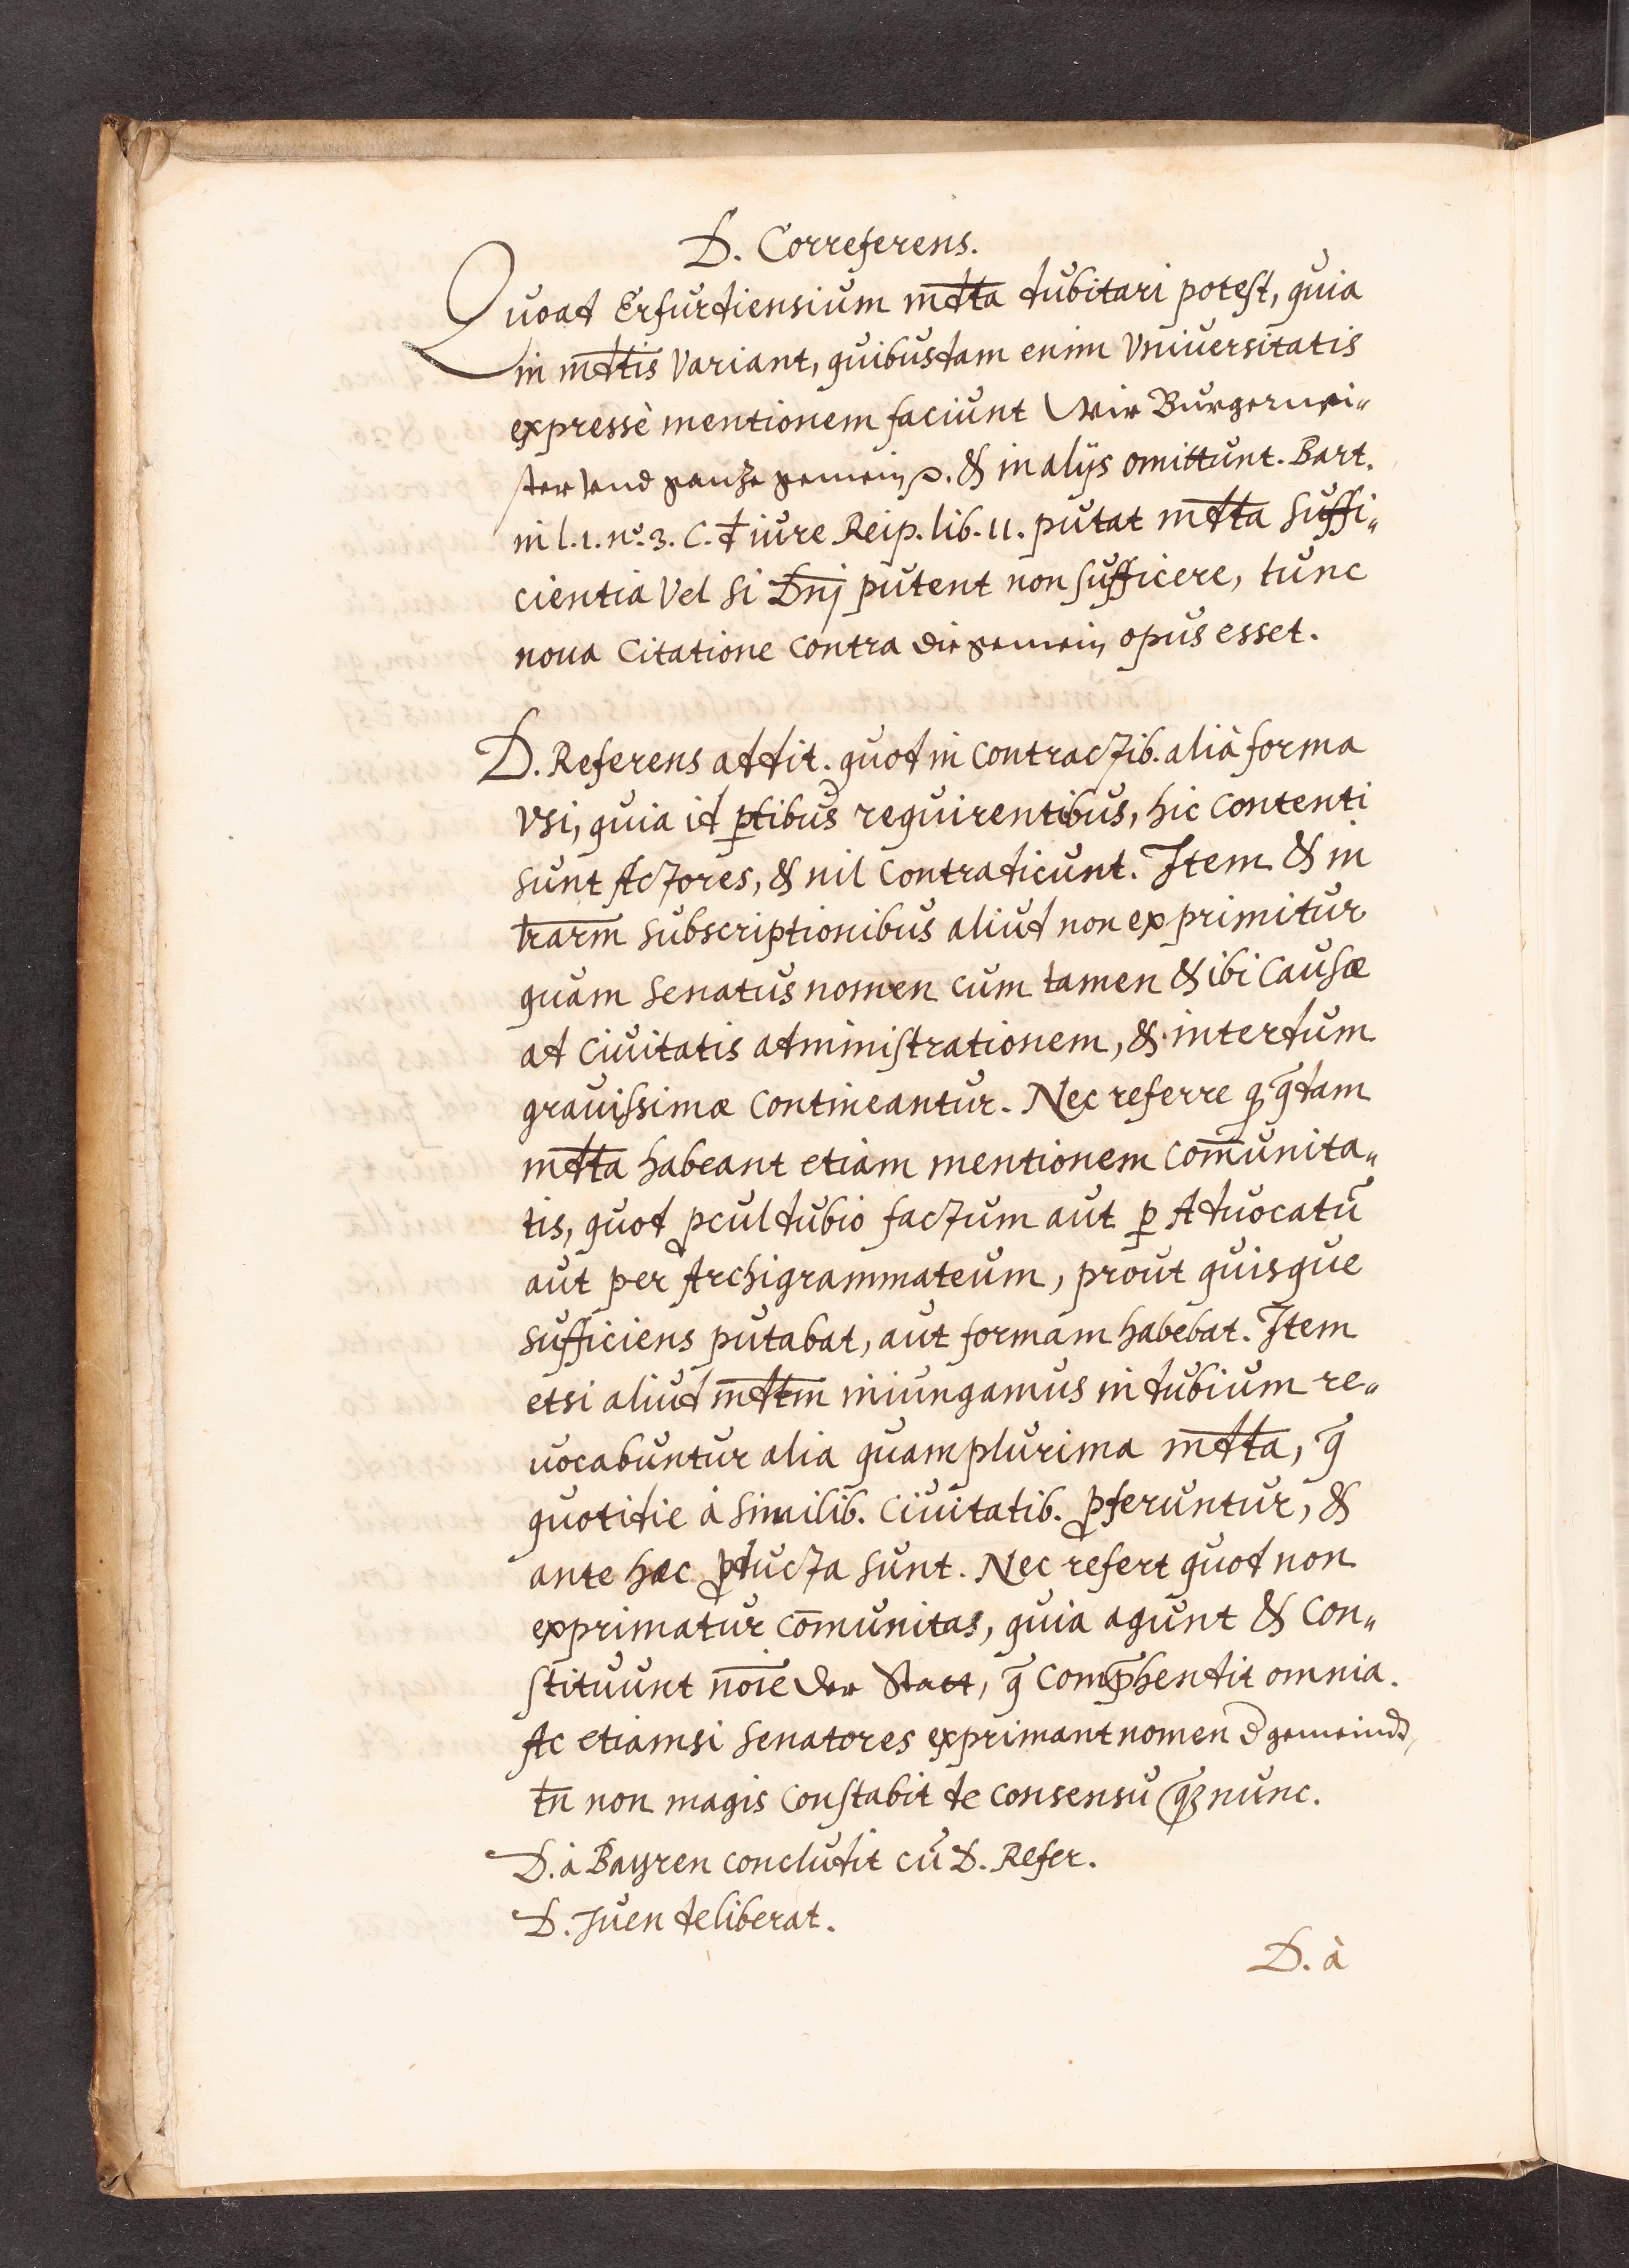 D. Correferens.
Quoad Erfurdiensium mdta dubitari potest, quia
in mdtis variant, quibusdam enim Vniuersitatis
expressè mentionem faciunt Wir Burgermei„
ster vnd gantze gemein ꝛc. & in alijs omittunt. Bart.
in l. 1. no. 3. C. d iure Reip. lib. 11. putat mdta suffi„
cientia vel si Dnj putent non sufficere, tunc
noua citatione contra die gemein opus esset.
D. Referens addit. quod in contractib. aliâ forma
vsi, quia id ꝑtibus requirentibus, hic contenti
sunt Actores, & nil contradicunt. Item & in
lrarm̄ subscriptionibus aliud non exprimitur
quam Senatus nomen cum tamen & ibi causæ
ad ciuitatis administrationem, & interdum
grauissimæ contineantur. Nec referre ꝙ q̄dam
mdta habeant etiam mentionem com̄unita„
tis, quod ꝓcul dubio factum aut ꝑ Aduocatū
aut per Archigrammateum, prout quisque
sufficiens putabat, aut formam habebat. Item
etsi aliud mdtm iniungamus in dubium re„
uocabuntur alia quamplurima mdta, q̄
quotidie à similib. ciuitatib. ꝓferuntur, &
ante hæc ꝓducta sunt. Nec refert quod non
exprimatur com̄unitas, quia agunt & con„
stituunt noīe der Statt, q̄ comp̄hendit omnia.
Ac etiamsi Senatores exprimant nomen d gemeinde,
tn̄ non magis constabit de consensu q̄ꝫ nunc.
D. à Bayren concludit cū D. Refer.
D. Juen deliberat.
D. à